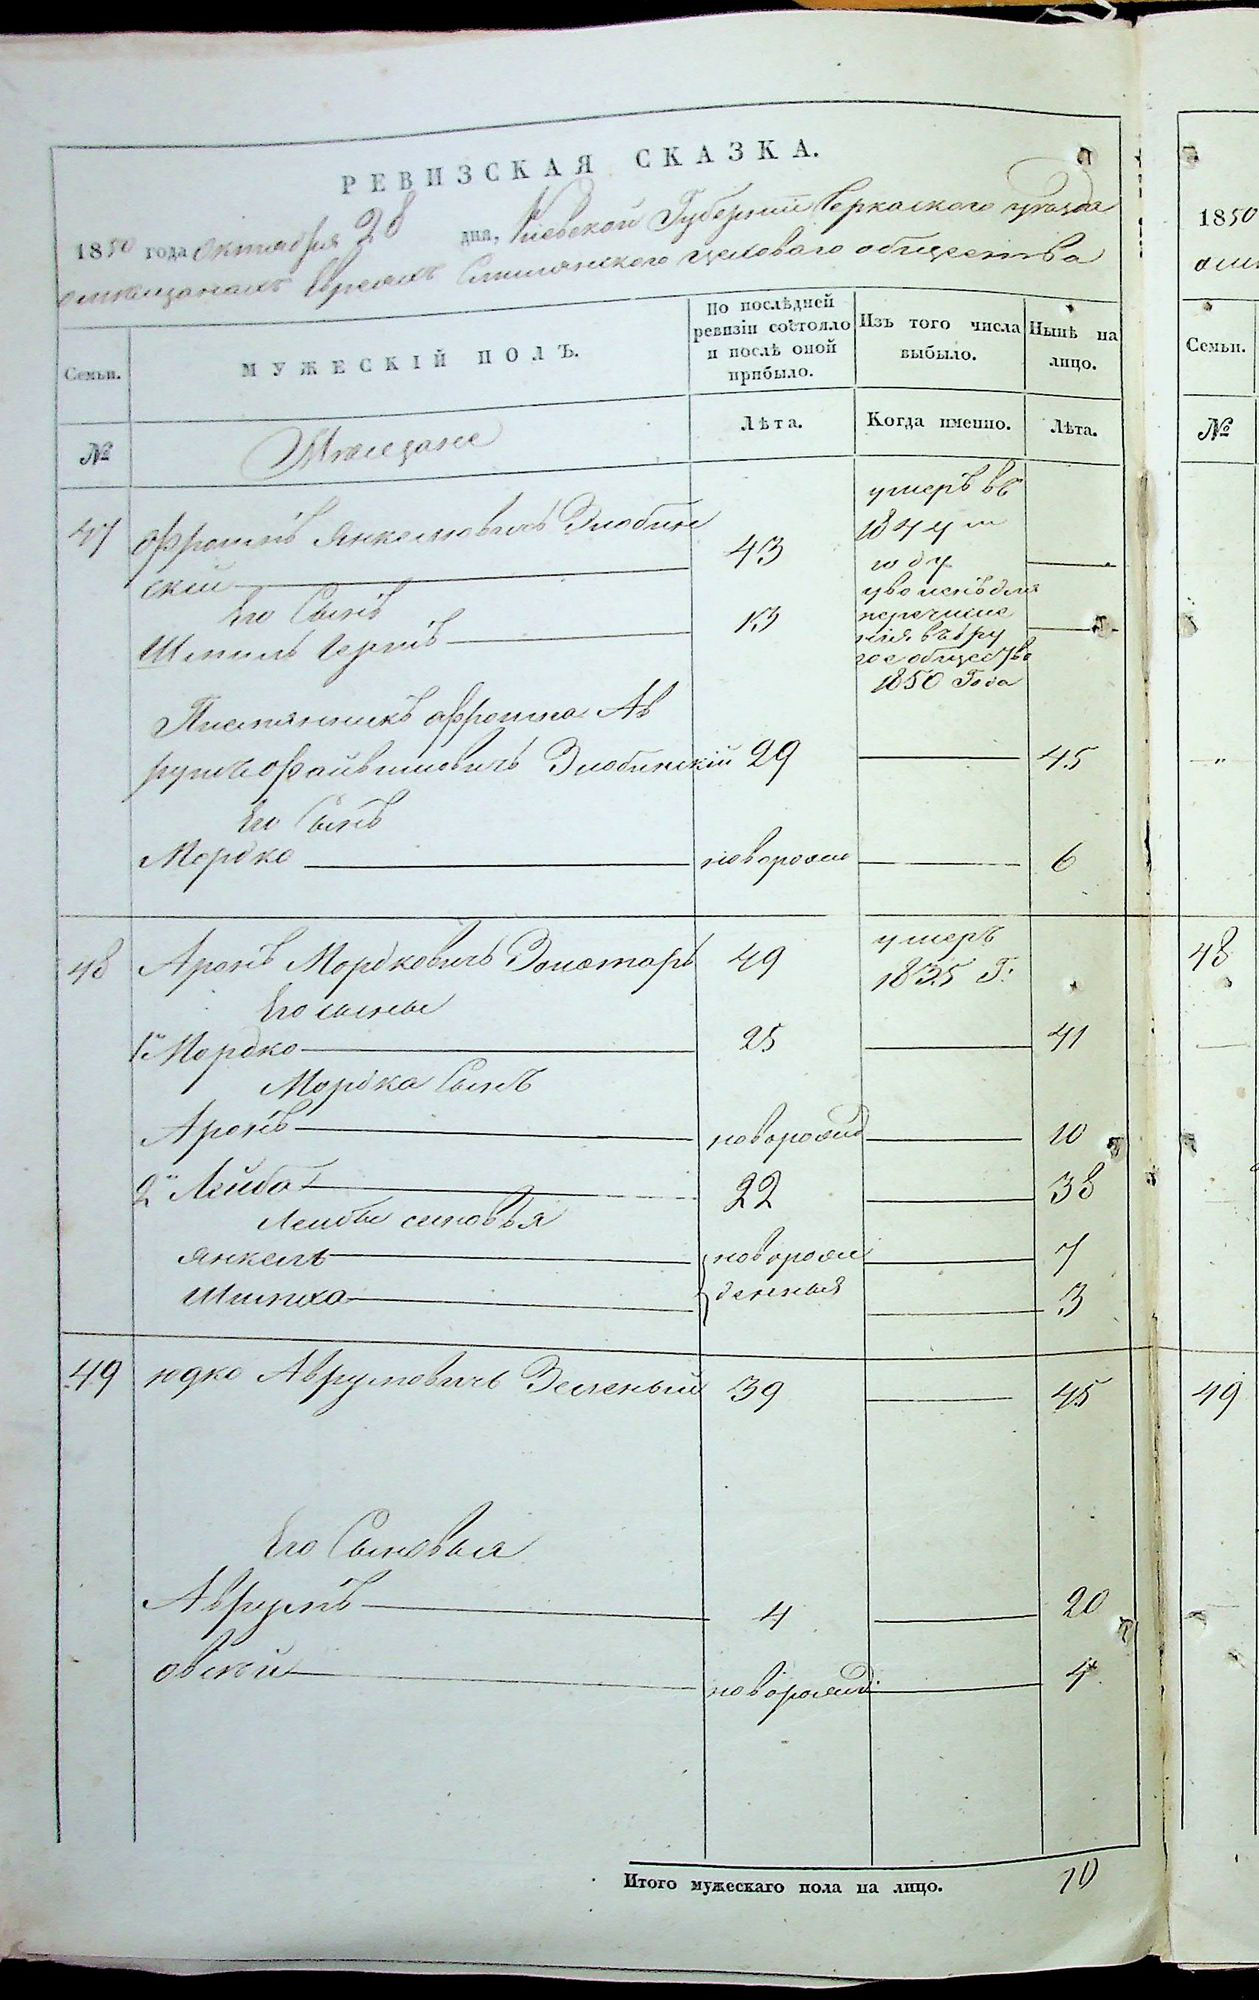 РЕВИЗСКАЯ СКАЗКА.
1850 года Октября 28 дня, Киевской Губернии Черкаского уезда
о мещанахъ Евреяхъ Смилянского общества
Семьи.
МУЖЕСКІЙ ПОЛЪ.
По послѣдней ревизіи состояло и послѣ оной прибыло.
Изъ того числа выбыло.
Нынѣ на лицо.
№
Мещане
Лѣта.
Когда именно.
Лѣта.
47
Янкелювичъ Злобин
скій
43
умеръ въ
1844 м
году
Его Сынъ
Шмиль Гершъ
13
уволенъ для
перечисле
нія въ дру
гое общество
1850 Года
Племянникъ Ав
румъ Файвишовичъ Злобинскій 29
45
Его Сынъ
Мордко
новорожд
6
48
Аронъ Мордковичъ Золотарь
49
умеръ
1835 Г.
Его сыны
1й Мордко
25
41
Мордка Сынъ
Аронъ
новорожд
10
2й Лейба
22
38
Лейбы синовья
Янкель
новорож
7
Шимха
денныя
3
49
Юдко Аврумовичъ Зеленый
39
45
Его Сыновья
Аврумъ
4
20
Овсій
новорожд.
4
Итого мужескаго пола на лицо.
10
1850
Семьи.
№
48
49